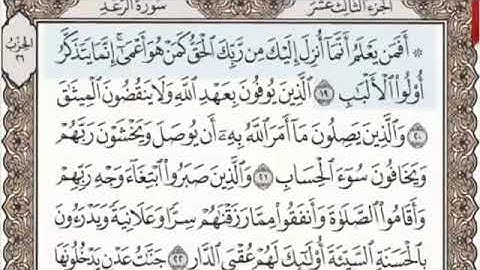 الجزء الثالث عشر
سورة الرعد
الحزب ٢٦
۞ أَفَمَن يَعْلَمُ أَنَّمَآ أُنزِلَ إِلَيْكَ مِن رَّبِّكَ ٱلْحَقُّ كَمَنْ هُوَ أَعْمَىٰٓ ۚ إِنَّمَا يَتَذَكَّرُ
أُو۟لُوا۟ ٱلْأَلْبَـٰبِ ١٩ ٱلَّذِينَ يُوفُونَ بِعَهْدِ ٱللَّهِ وَلَا يَنقُضُونَ ٱلْمِيثَـٰقَ
٢٠ وَٱلَّذِينَ يَصِلُونَ مَآ أَمَرَ ٱللَّهُ بِهِۦٓ أَن يُوصَلَ وَيَخْشَوْنَ رَبَّهُمْ
وَيَخَافُونَ سُوٓءَ ٱلْحِسَابِ ٢١ وَٱلَّذِينَ صَبَرُوا۟ ٱبْتِغَآءَ وَجْهِ رَبِّهِمْ
وَأَقَامُوا۟ ٱلصَّلَوٰةَ وَأَنفَقُوا۟ مِمَّا رَزَقْنَـٰهُمْ سِرًّا وَعَلَانِيَةً وَيَدْرَءُونَ
بِٱلْحَسَنَةِ ٱلسَّيِّئَةَ أُو۟لَـٰٓئِكَ لَهُمْ عُقْبَى ٱلدَّارِ ٢٢ جَنَّـٰتُ عَدْنٍ يَدْخُلُونَهَا